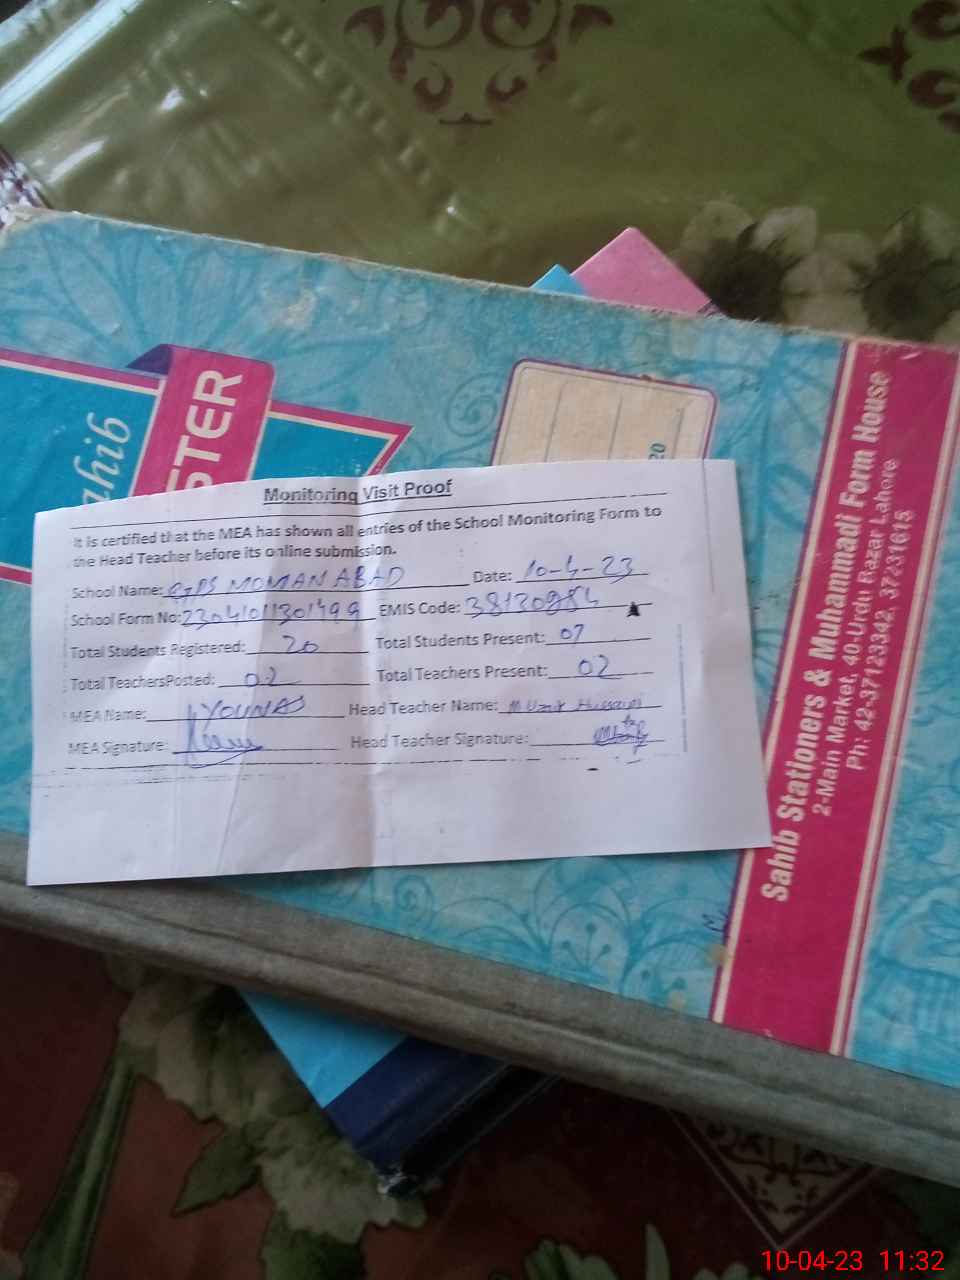 ahib
STER
20
Monitoring Visit Proof
It is certified that the MEA has shown all entries of the School Monitoring Form to
the Head Teacher before its online submission.
School Name: GPS MOMAN ABAD Date: 10-4-23
School Form No: EMIS Code: 38130984
Total Students Registered: 20 Total Students Present: 07
Total TeachersPosted: 02 Total Teachers Present: 02
MEA Name: YOUNAS Head Teacher Name: M Hussain
MEA Signature: Head Teacher Signature:
Sahib Stationers & Muhammadi Form House
2-Main Market, 40-Urdu Bazar Lahore
Ph: 42-37123342, 37231615
10-04-23 11:32